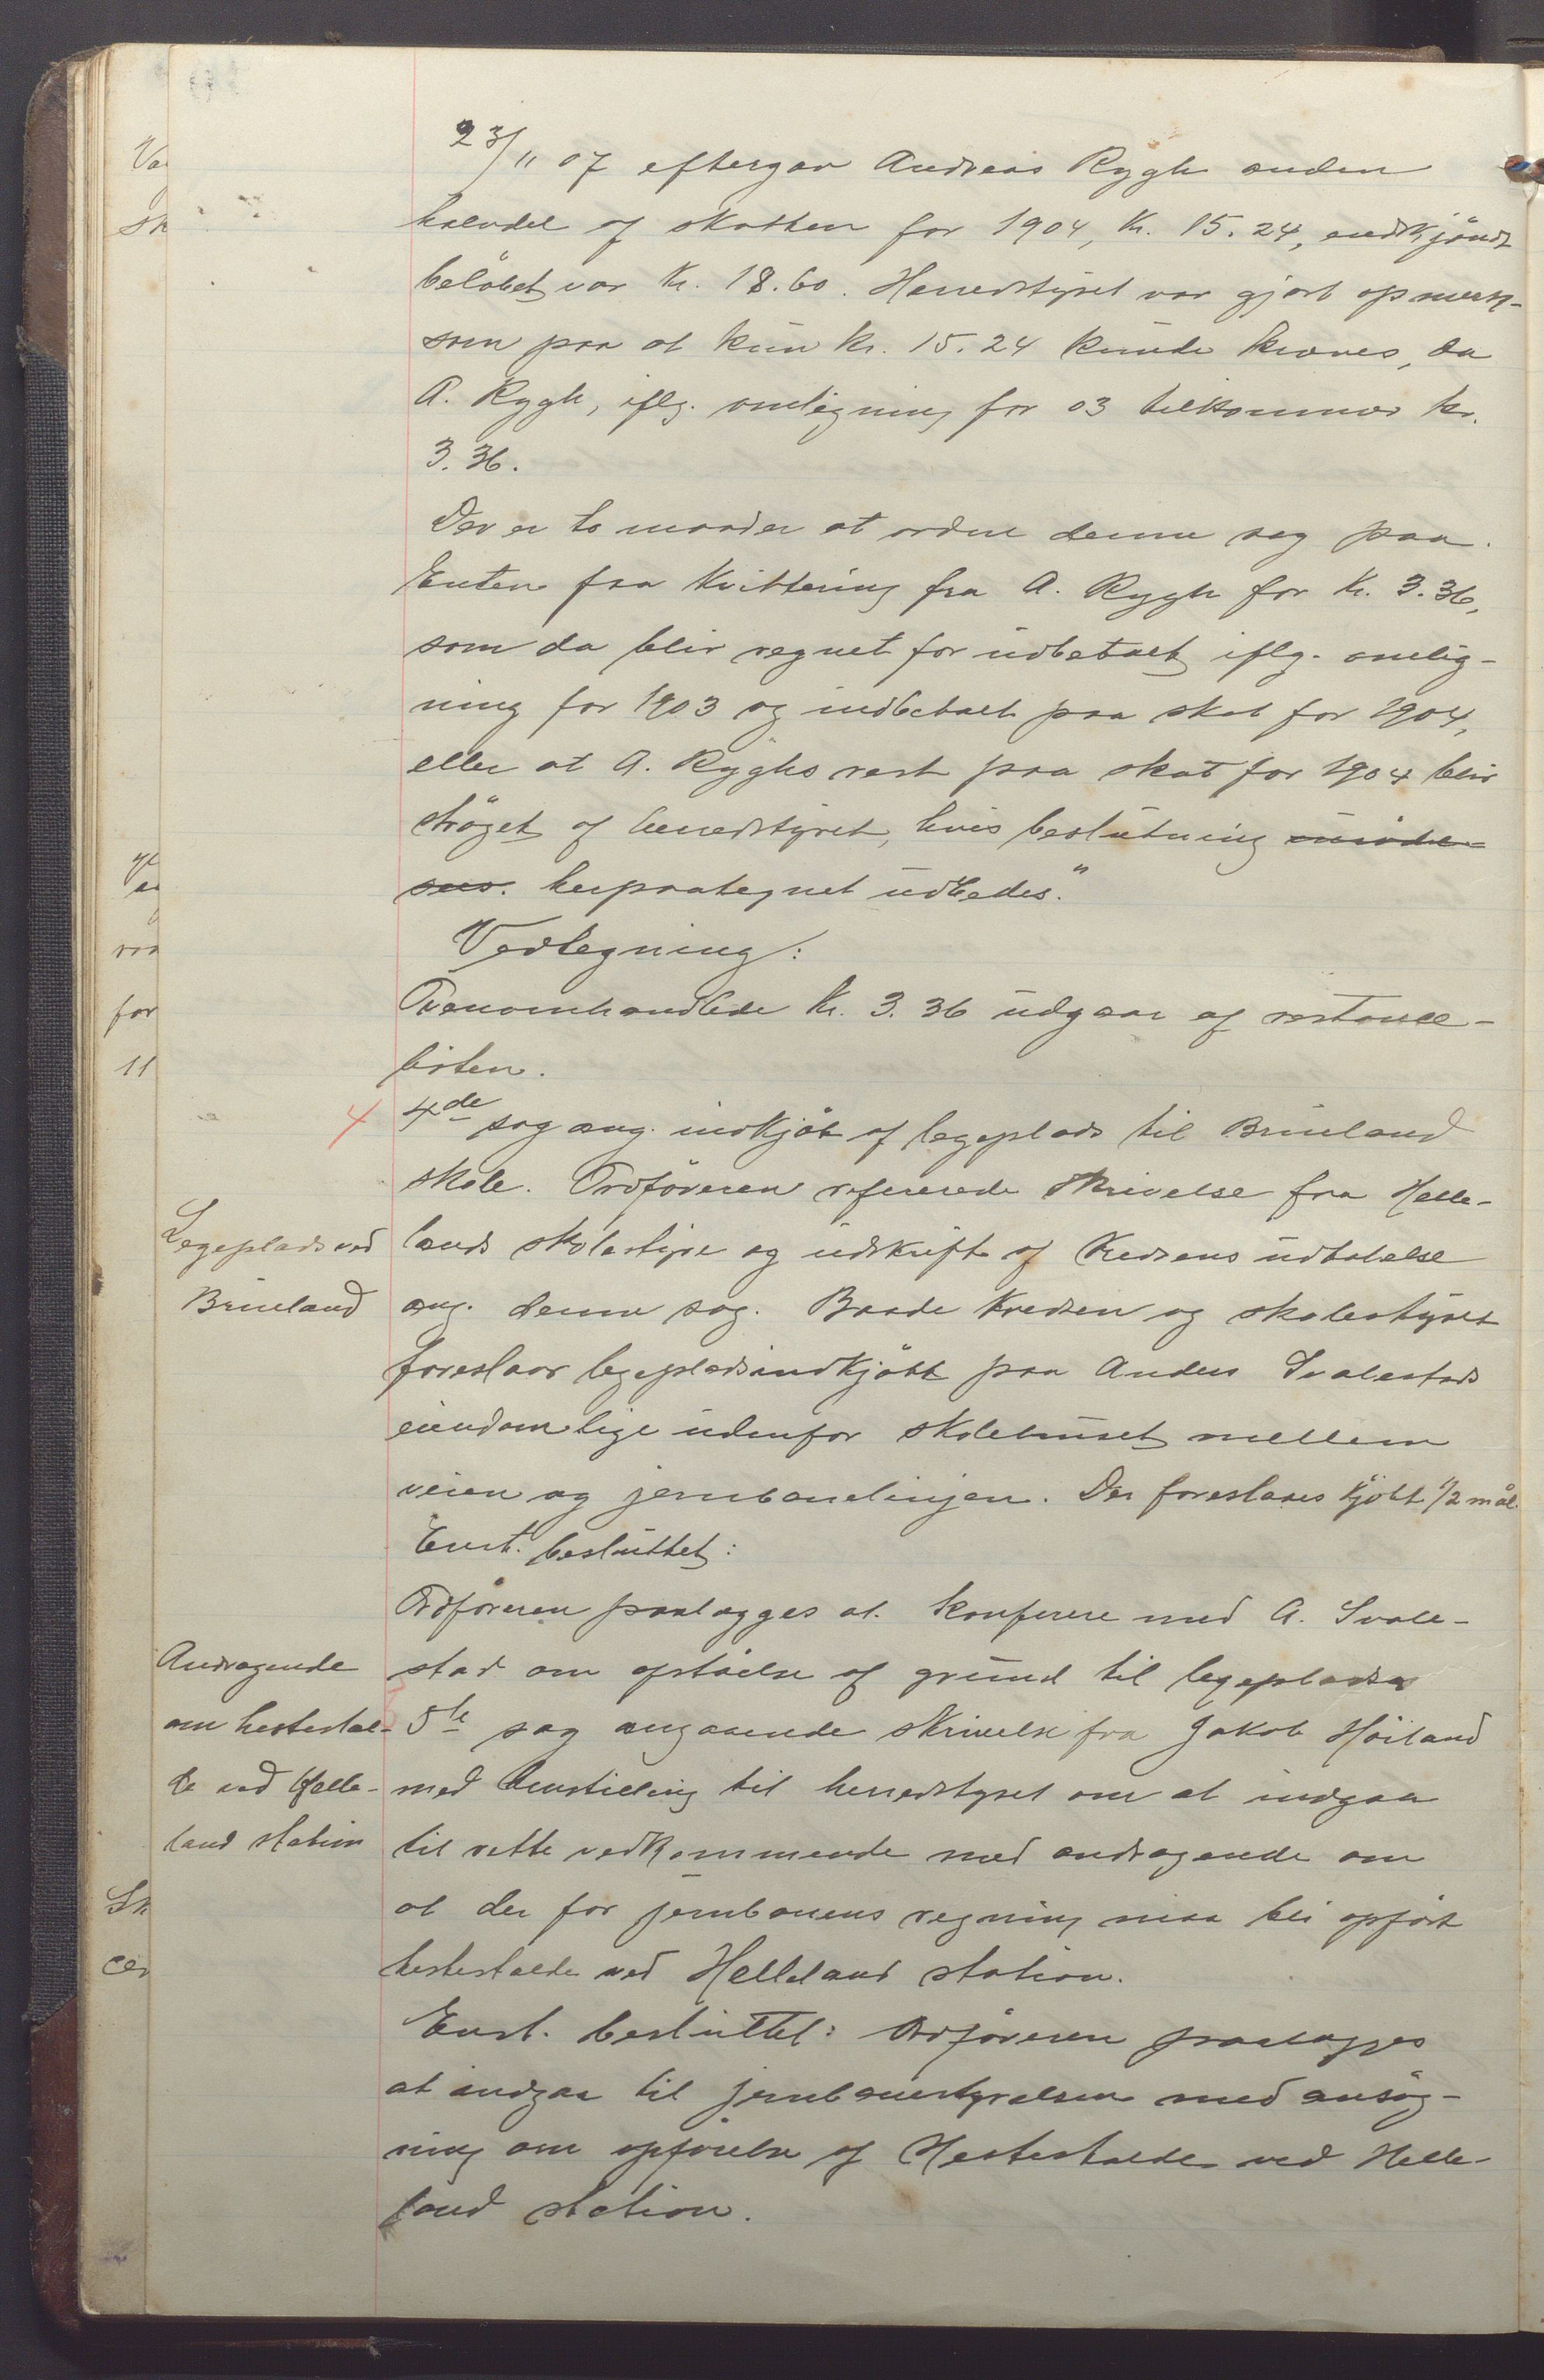 23/11 07 eftergav Andreas Rygh anden
halvdel af skatten for 1904, kr. 15.24, endskjöndt
belöbet var kr. 18.60. Herredstyret var gjort opmerk-
som paa at kun kr. 15.24 kunde kræves, da
A. Rygh, iflg. omligning for 03 tilkommer kr.
3.36.
Der er to maader at ordne denne sag paa.
Enten faa kvittering fra A. Rygh for kr. 3.36,
som da blir regnet for udbetalt iflg. omlig-
ning for 1903 og indbetalt paa skat for 1904,
eller at A. Ryghs rest paa skat for 1904 blir
ströget af herredstyret, hvis beslutning
herpaategnet udbedes."
Vedtegning:
Ovenomhandlede kr. 3.36 udgaar af restance-
listen.
4 4de sag ang. indkjöb af legeplads til Brueland
skole. Ordföreren refererede skrivelse fra Helle-
Legeplads ved
Brueland
lands skolestyre og udskrift af kredsens udtalelse
ang. denne sag. Baade kredsen og skolestyret
foreslaar legeplads indkjöbt paa Anders Svalestads
eiendom lige udenfor skolehuset mellem
veien og jernbanelinjen. Der foreslaaes kjöbt 1/2 mål.
Enst. besluttet:
Ordföreren paalægges at konferere med A. Svale-
stad om afståelse af grund til legeplads
Andragende
om hestestal-
de ved Helle-
land station
5te sag angaaende skrivelse fra Jakob Höiland
med henstilling til herredstyret om at indgaa
til rette vedkommende med andragende om
at der for jernbanens regning maa bli opfört
hestestalde ved Helleland station.
Enst. besluttet: Ordföreren paalægges
at indgaa til jernbanestyrelsen med ansög-
ning om opförelse af Hestestalde ved Helle-
land station.
Va
Sk
raa
for
11
Sk